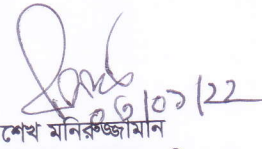 ০৬/০১/22
শেখ মনিরুজ্জামান